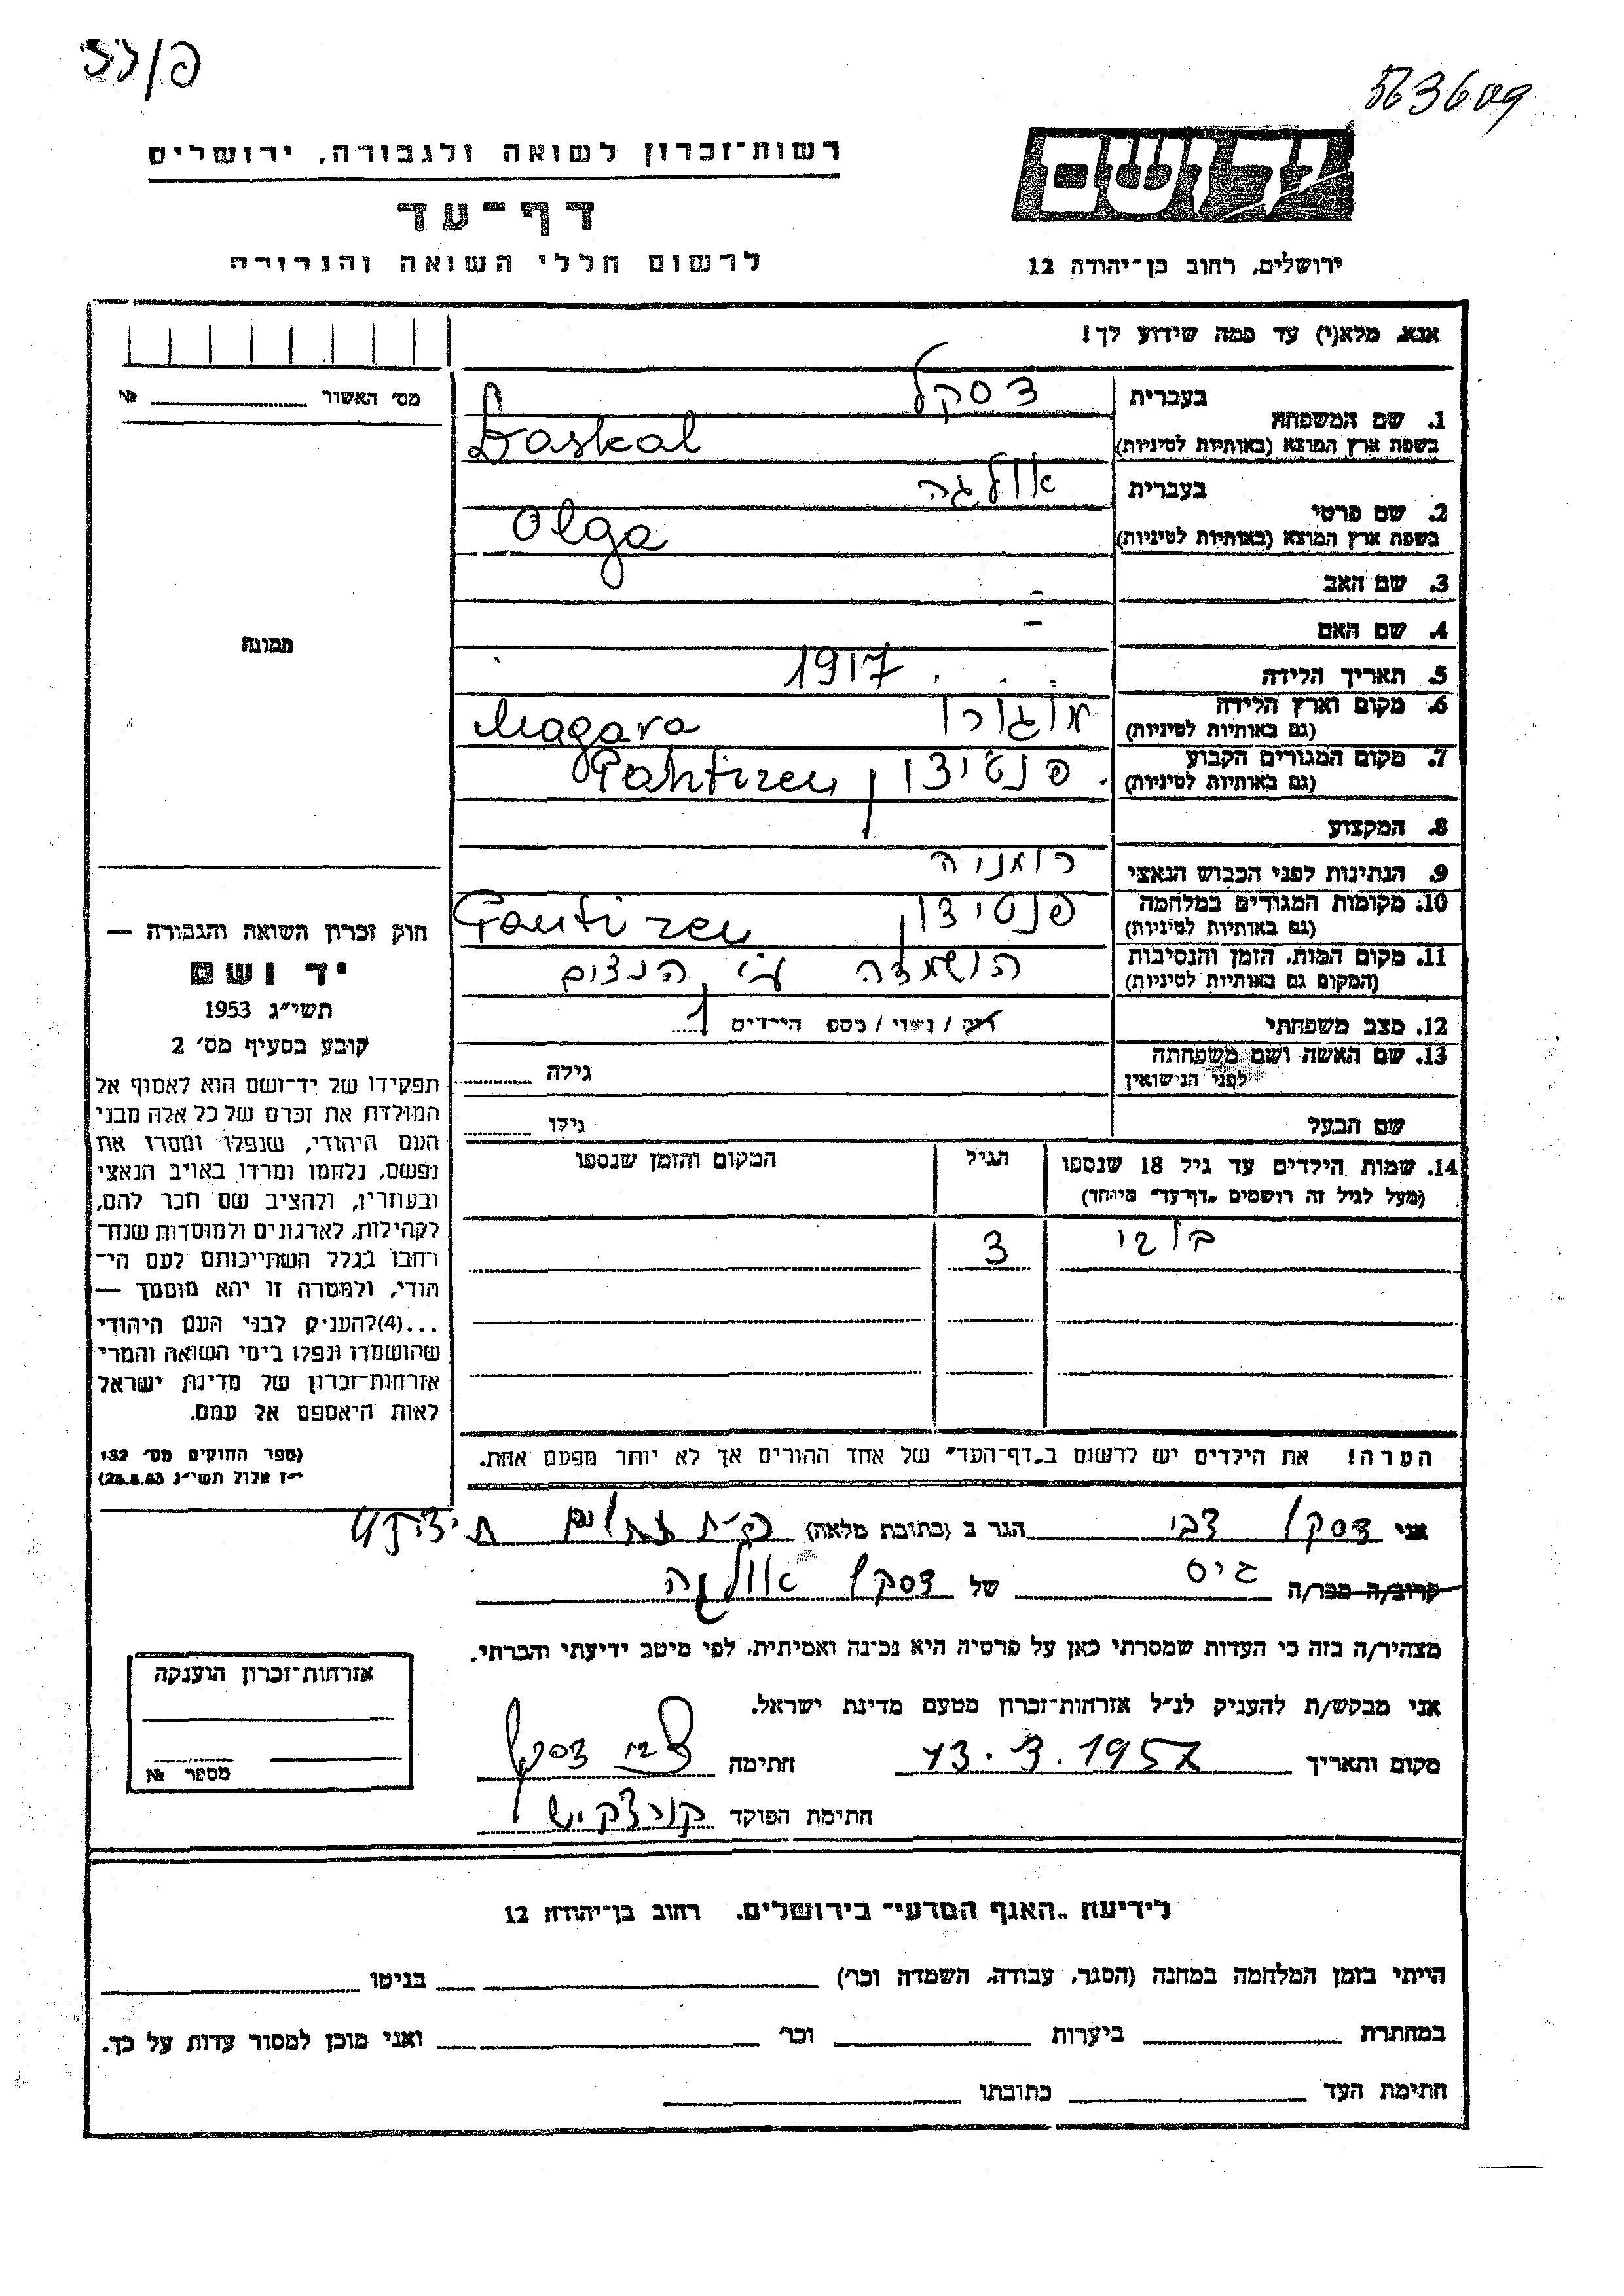 563609
רשות־זכרון לשואה ולגבורה, ירושלים
דף־עד
לרשום חללי השואה והגבורה
יד ושם
ירושלים, רחוב בן־יהודה 12
אנא, מלא(י) עד כמה שידוע לך!
בעברית דסקל
1. שם המשפחה
בשפת ארץ המוצא (באותיות לטיניות) Daskal
בעברית אולגה
2. שם פרטי
בשפת ארץ המוצא (באותיות לטיניות) Olga
3. שם האב -
4. שם האם -
5. תאריך הלידה 1917
6. מקום וארץ הלידה
(גם באותיות לטיניות) Magara
7. מקום המגורים הקבוע פנטיצן
(גם באותיות לטיניות)
8. המקצוע
9. הנתינות לפני הכבוש הנאצי רומניה
10. מקומות המגורים במלחמה פנטיצן
(גם באותיות לטיניות)
11. מקום המות, הזמן והנסיבות הושמדה ע״י הנצים
(המקום גם באותיות לטיניות)
12. מצב משפחתי רוק / נשוי / מספ הילדים 1
13. שם האשה ושם משפחתה גילה
לפני הנישואין
שם הבעל גילו
14. שמות הילדים עד גיל 18 שנספו הגיל המקום והזמן שנספו
(מעל לגיל זה רושמים „דף־עד״ מיוחד)
3
הערה! את הילדים יש לרשום ב„דף־העד״ של אחד ההורים אך לא יותר מפעם אחת.
מס׳ האשור №
תמונה
חוק זכרון השואה והגבורה —
יד ושם
תשי״ג 1953
קובע בסעיף מס׳ 2
תפקידו של יד־ושם הוא לאסוף אל
המולדת את זכרם של כל אלה מבני
העם היהודי, שנפלו ומסרו את
נפשם, נלחמו ומרדו באויב הנאצי
ובעוזריו, ולהציב שם וזכר להם,
לקהילות, לארגונים ולמוסדות שנח־
רבו בגלל השתייכותם לעם הי־
הודי, ולמטרה זו יהא מוסמך —
...(4)להעניק לבני העם היהודי
שהושמדו ונפלו בימי השואה והמרי
אזרחות־זכרון של מדינת ישראל
לאות היאספם אל עמם.
(ספר החוקים מס׳ 132
י״ז אלול תשי״ג 28.8.53)
אני דסקל צבי הגר ב (כתובת מלאה)
קרוב/ה מכר/ה גיס של דסקל אולגה
מצהיר/ה בזה כי העדות שמסרתי כאן על פרטיה היא נכונה ואמיתית, לפי מיטב ידיעתי והכרתי.
אני מבקש/ת להעניק לנ״ל אזרחות־זכרון מטעם מדינת ישראל.
מקום ותאריך 13.3.1957 חתימה צבי דסקל
חתימת הפוקד
אזרחות־זכרון הוענקה
מספר №
לידיעת „האגף המדעי״ בירושלים, רחוב בן־יהודה 12
הייתי בזמן המלחמה במחנה (הסגר, עבודה, השמדה וכו׳) בגיטו
במחתרת ביערות וכו׳ ואני מוכן למסור עדות על כך.
חתימת העד כתובתו